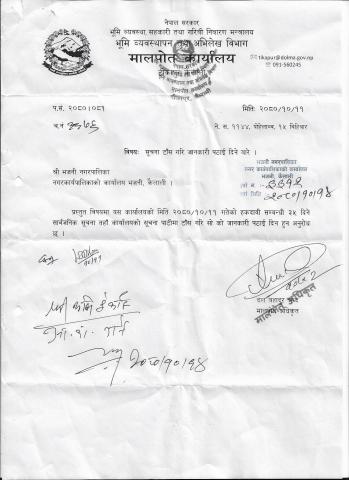 नेपाल सरकार
भूमि व्यवस्था, सहकारी तथा गरिवी निवारण मन्त्रालय
भूमि व्यवस्थापन तथा अभिलेख विभाग
मालपोत कार्यालय
tikapur@dolma.gov.np
091-560245
प.सं. २०८०।०८१
मितिः २०८०/१०/११
च.नं
ने. स. ११४४, पोहेलाथ्व, १५ बिहिवार
विषयः सूचना टाँस गरि जानकारी पठाई दिने बारे ।
श्री भजनी नगरपालिका
नगरकार्यपालिकाको कार्यालय भजनी, कैलाली ।
भजनी नगरपालिका
नगर कार्यपालिकाको कार्यालय
भजनी, कैलाली
२०८०/१०/१४
प्रस्तुत विषयमा यस कार्यालयको मिति २०८०/१०/११ गतेको हकदावी सम्बन्धी ३५ दिने
सार्वजनिक सूचना तहाँ कार्यालयको सूचना पाटीमा टाँस गरि सो को जानकारी पठाई दिन हुन अनुरोध
छ ।
मालपोत अधिकृत
मालपोत अधिकृत
२०८०/१०/१४